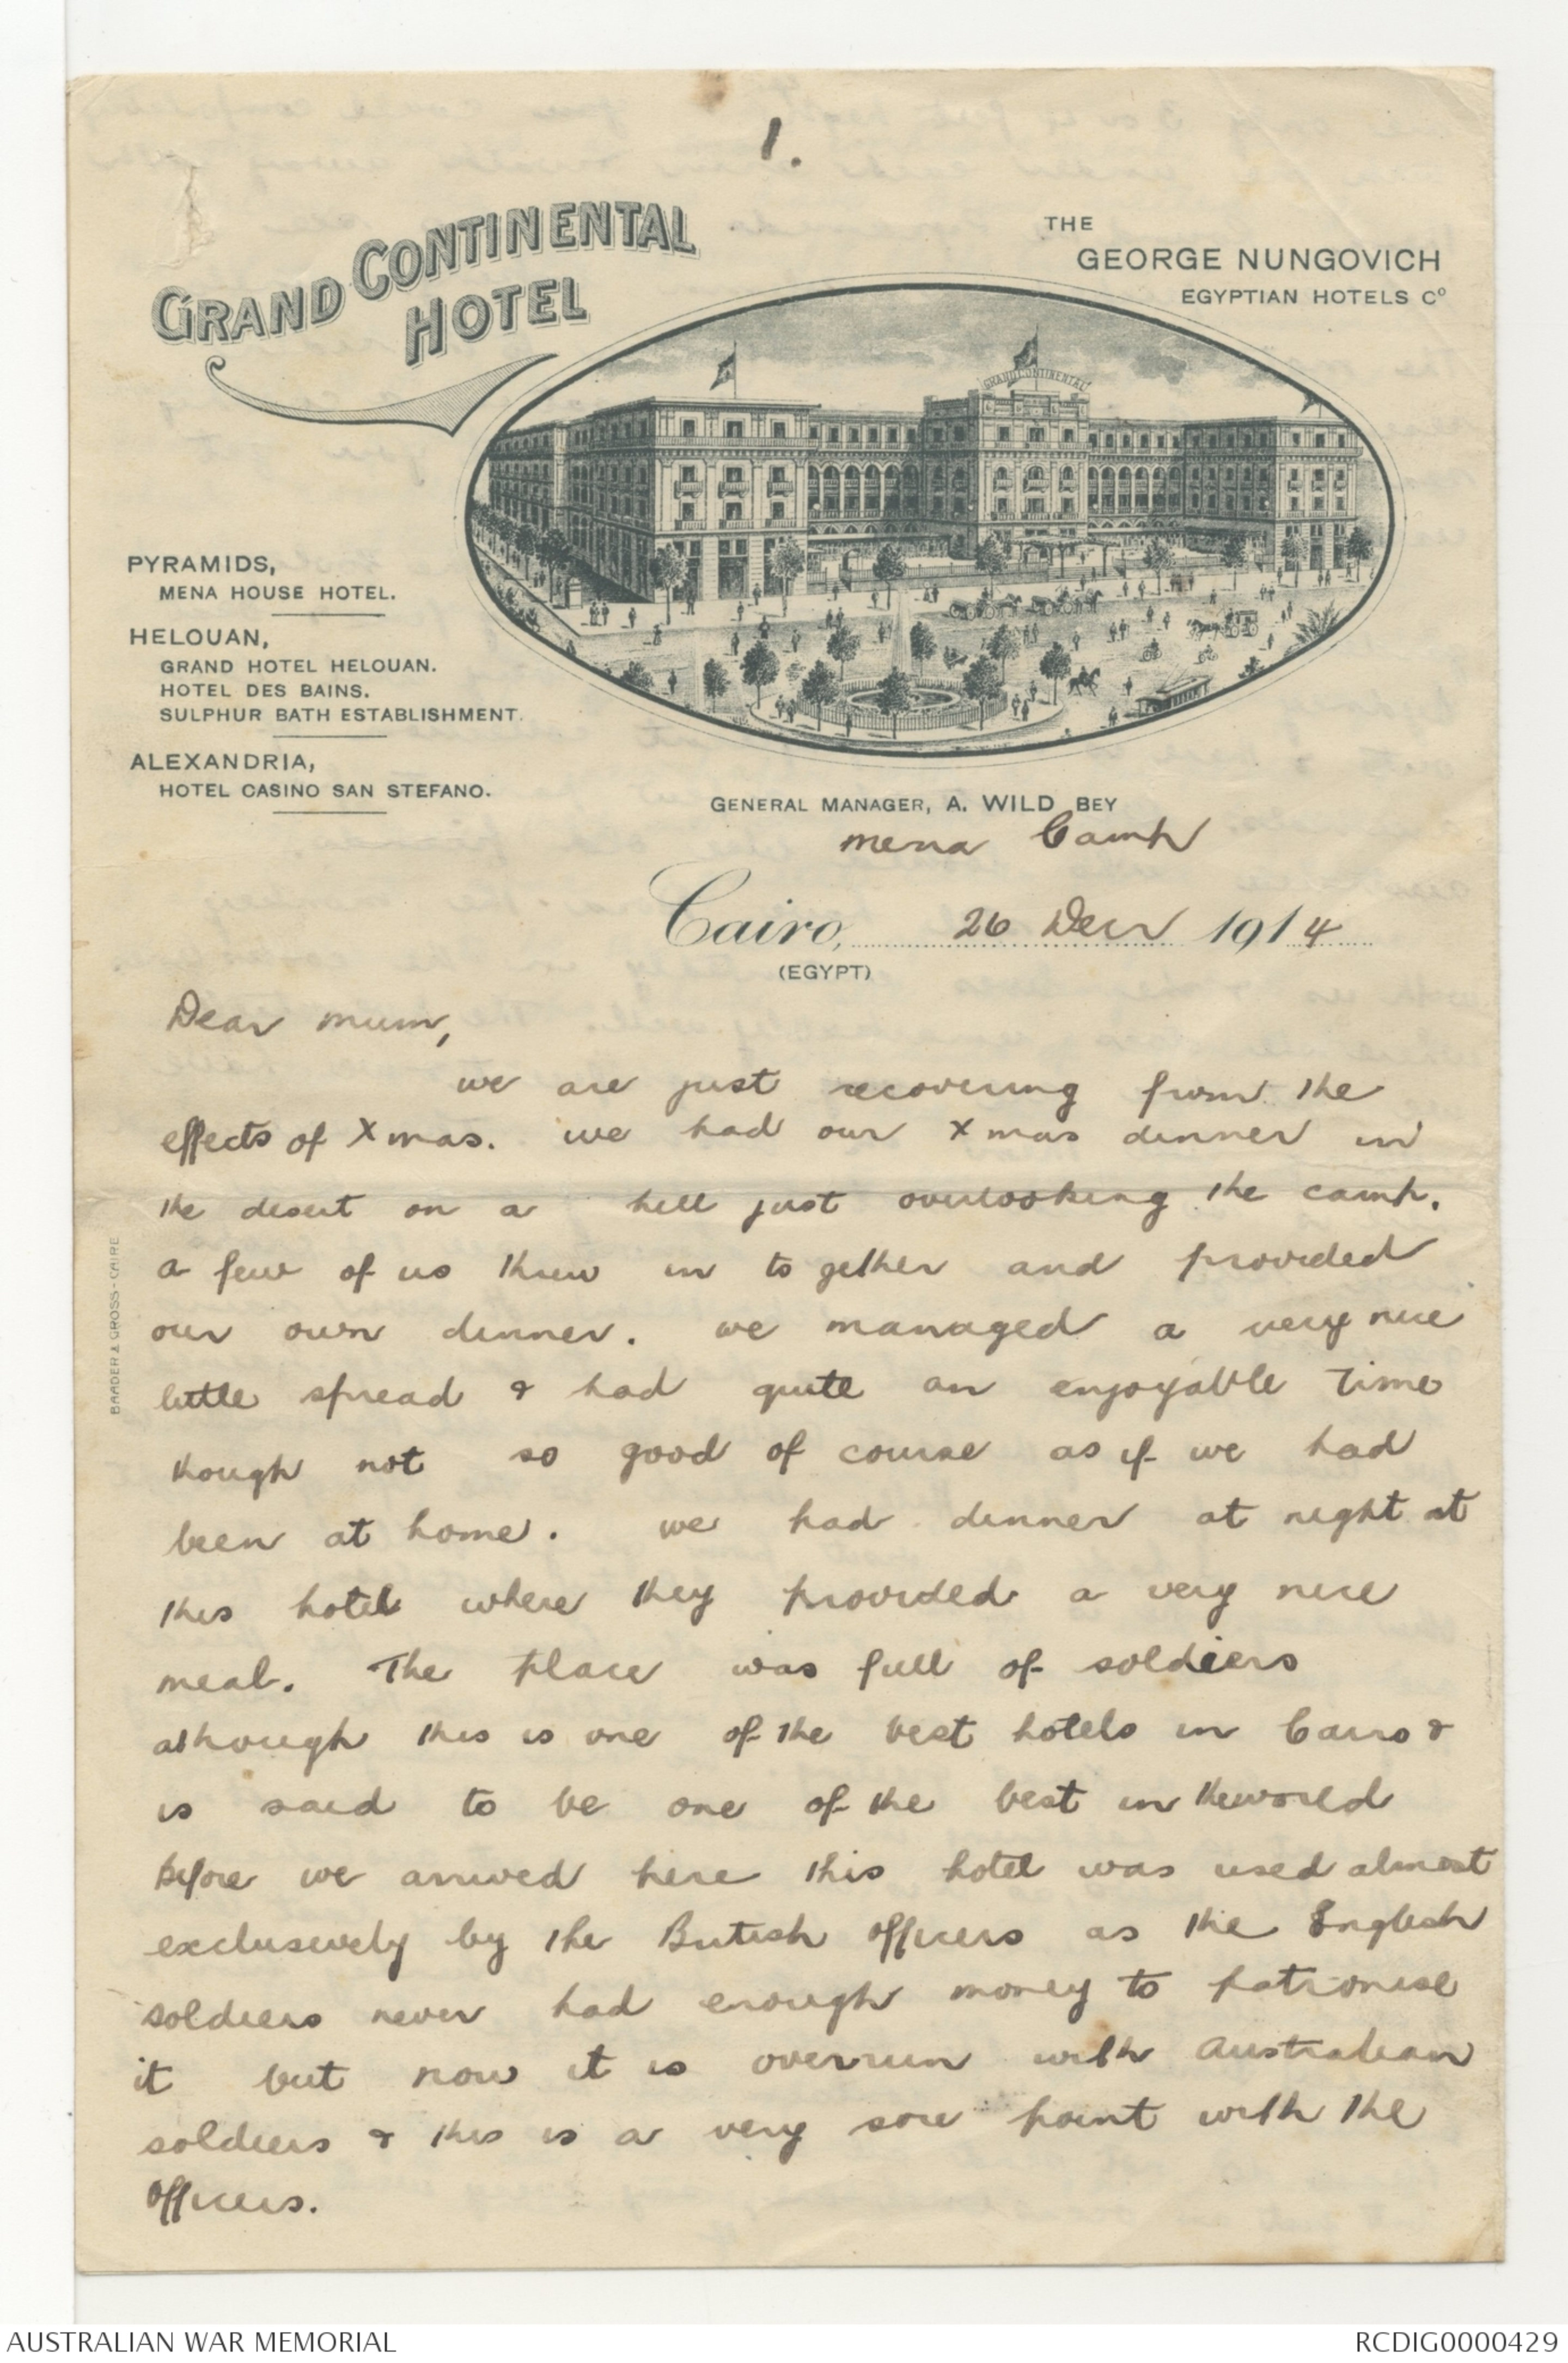 1.
GRAND CONTINENTAL
HOTEL
THE
GEORGE NUNGOVICH
EGYPTIAN HOTELS Cº
GRAND CONTINENTAL
PYRAMIDS,
MENA HOUSE HOTEL.
HELOUAN,
GRAND HOTEL HELOUAN.
HOTEL DES BAINS.
SULPHUR BATH ESTABLISHMENT.
ALEXANDRIA,
HOTEL CASINO SAN STEFANO.
GENERAL MANAGER, A. WILD BEY
Mena Camp
Cairo, 26 Decr 1914
(EGYPT)
Dear Mum,
we are just recovering from the
effects of Xmas. we had our Xmas dinner in
the desert on a hill just overlooking the camp.
a few of us threw in to gether and provided
our own dinner. we managed a very nice
little spread & had quite an enjoyable time
though not so good of course as if we had
been at home. we had dinner at night at
this hotel where they provided a very nice
meal. The place was full of soldiers
although this is one of the best hotels in Cairo &
is said to be one of the best in the world
before we arrived here this hotel was used almost
exclusively by the British officers as the English
soldiers never had enough money to patronise
it but now it is overrun with Australian
soldiers & this is a very sore point with the
officers.
BAADER & GROSS - CAIRE
AUSTRALIAN WAR MEMORIAL
RCDIG0000429